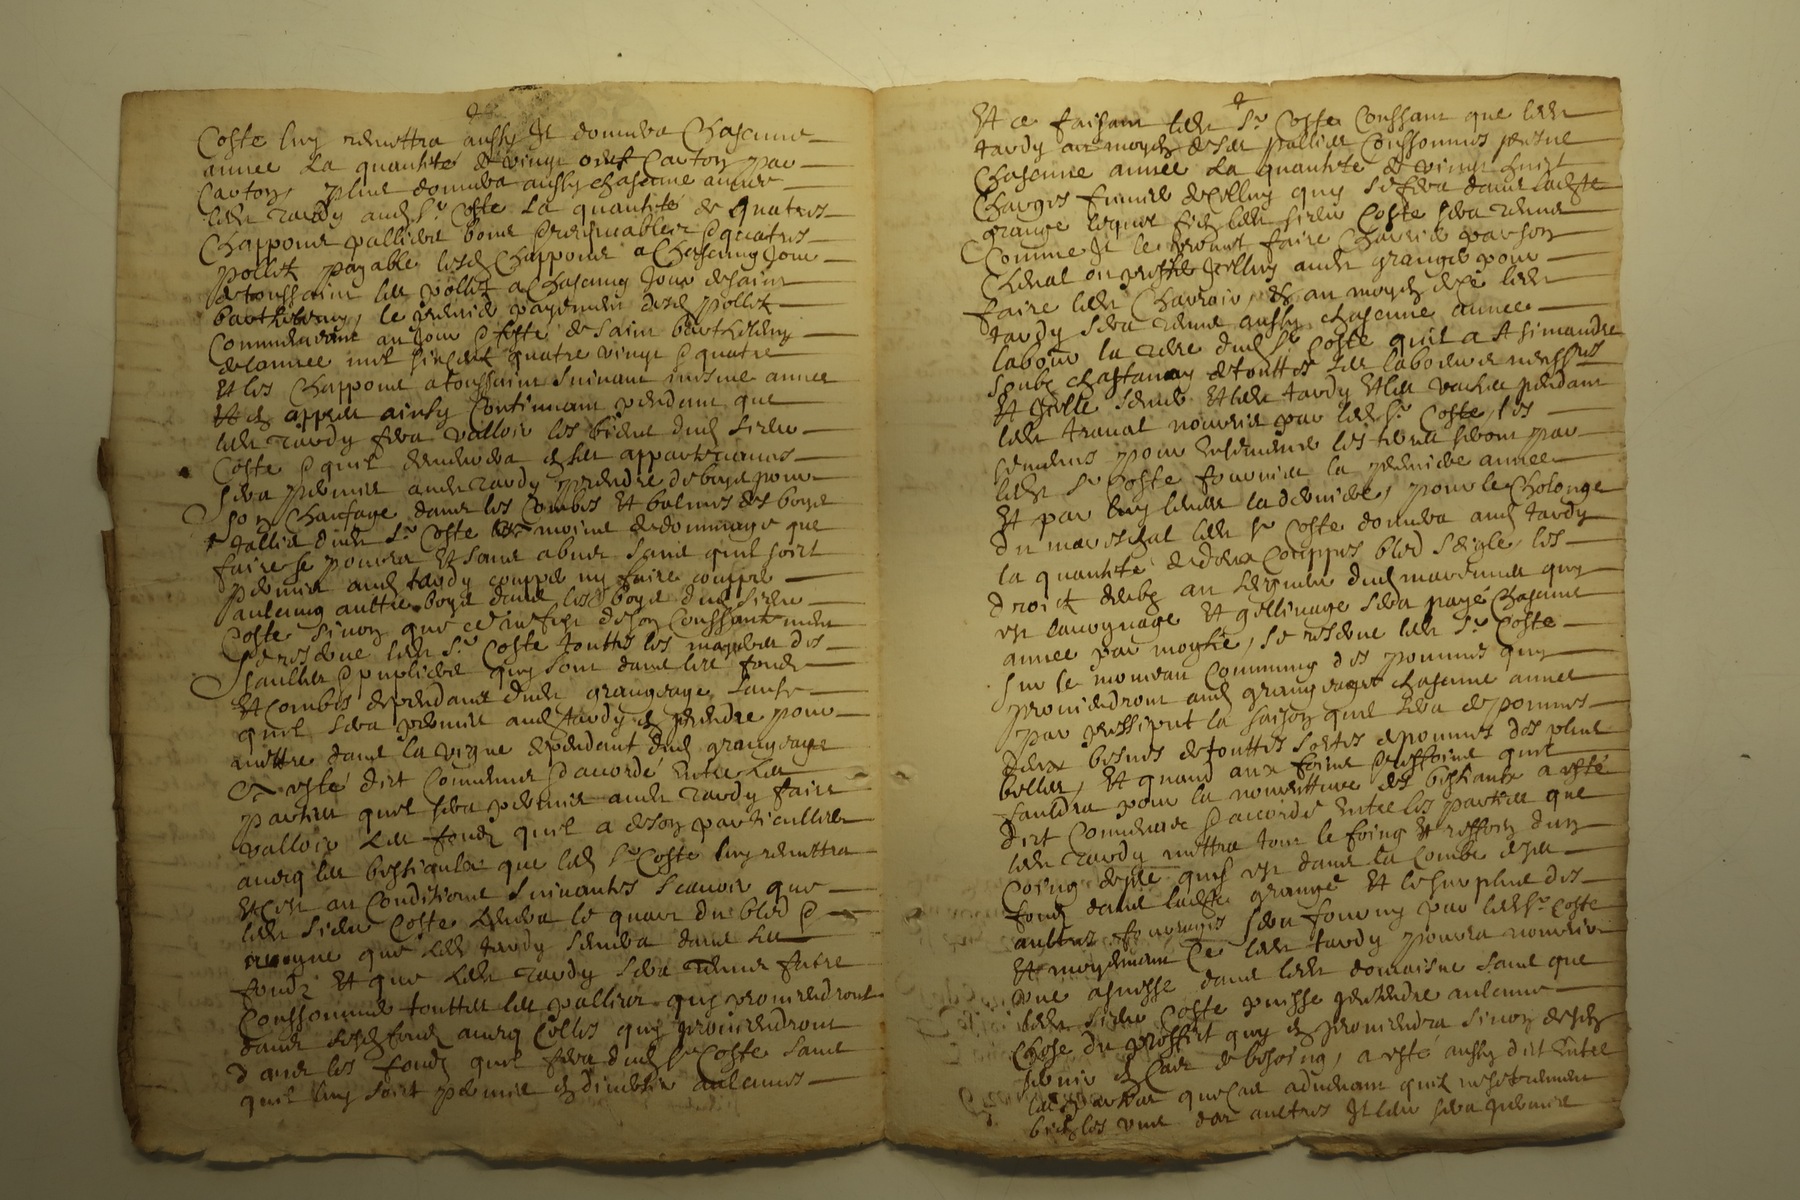 Coste luy remettra aussy Il donnera Chascune
annee La quantité de vingt oeufz Carton par
Carton, plus donnera aussy chascune annee
ledt tardy aud sr Coste La quantité de quatres
Chappons palliers bons &
pollitz payable lesd Chappons a Chascung Jour
de toussaint les pollitz a Chascung Jour de saint
barthelemy, le premier payement desd pollitz
Commencera au Jour & feste de saint barthelemy
de lannee mil six cent quatre vingt & quatre
Et les Chappons a toussaint suivant mesme annee
Et apprés ainsy Continuant pendant que
ledt tardy fera valloir les biens dud sieur
Coste & quil
sera permis audt tardy prendre de boys pour
son Chaufage dans les Combes Et balmes des boys
tallis dudt sr Coste au moins de dommage que
faire se pourra Et sans abus sans quil soict
permis aud tardy couppé ny faire couppé
aulcung aultre boys dans les boys dud sieur
Coste sinon que ce ne fust de son Conssantement
Se reserve ledt sr Coste touttes les
saulles & publiers quy sont dans les fonds
Et Combes dependans dudt grangeage, sauf
quil sera permis aud tardy den prendre pour
mettre dans la vigne dependant dud grangeage
A esté dict Convenus & accordé Entre les
parties quil sera permis audt tardy faire
valloir les fondz quil a de son particullier
avecq les bestiaulx que led sr Coste luy remettra
Et ce au Conditions suivantes scavoir que
ledt sieur Coste prendra le quart du bled &
que ledt tardy semera dans les
fondz Et que ledt tardy sera tenus faire
Conssommer touttes les pallies quy proviendront
dans sesd fondz avecq Celles quy proviendront
dans les fondz quil fera dud sr Coste sans
quil luy soict permis en divertir aulcunes
Et ce faisant ledt sr Coste Conssant que ledt
tardy au moyen desd pallies Conssommés prenne
Chascune annee La quantité de vingt huict
Charges fumier quy se fera dans ladte
grange lequel fied ledt sieur Coste sera tenus
Comme Il le promet faire Charrié par son
Cheval ou prester Icelluy audt granger pour
faire ledt Charroir, Et au moyen de ce ledt
tardy sera tenus aussy chascune annee
labour la terre dud sr Coste quil a A simandre
soubz chastanay de touttes les laboures necessres
Et Icelle semer Et ledt tardy Et les vaches pendant
ledt travail nourris par ledt sr Coste, les
semens pour ensemencer les terres seront par
ledt sr Coste fournies la premiere annee
Et par luy la derniere, pour le Cholonge
du mareschal ledt sr Coste donnera aud tardy
la quantité de deux Couppes bled seigle, les
droict deubz au seigneur dud quy
est lauognage Et gellinage sera payé Chascune
annee par moytié, se reserve ledt sr Coste
sur le monceau Commung des pommes quy
proviendront aud grangeage chascune annee
par la saison quil sera de pommes
deux besnes de touttes sortes de pommes des plus
belles, Et quand aux foins & refoins quil
fauldra pour la nourriture des bestiaux a esté
dict Convenus & accordé Entre les parties que
ledt tardy mettra tout le foing Et reffoin dun
Coing de pré quil est dans la Combe de ses
fondz dans ladte grange Et le surplus des
aultres fourages sera fourny par ledt sr Coste
Et moyennant Ce ledt tardy pourra nourrir
une asnesse dans ledt domaine sans que
ledt sieur Coste puisse prettendre aulcune
Chose du proffict quy en proviendra sinon de sen
servir en Cas de besoing, a esté aussy dict Entre
les parties que Cas advenant quil
les uns des aultres Il leur sera permis